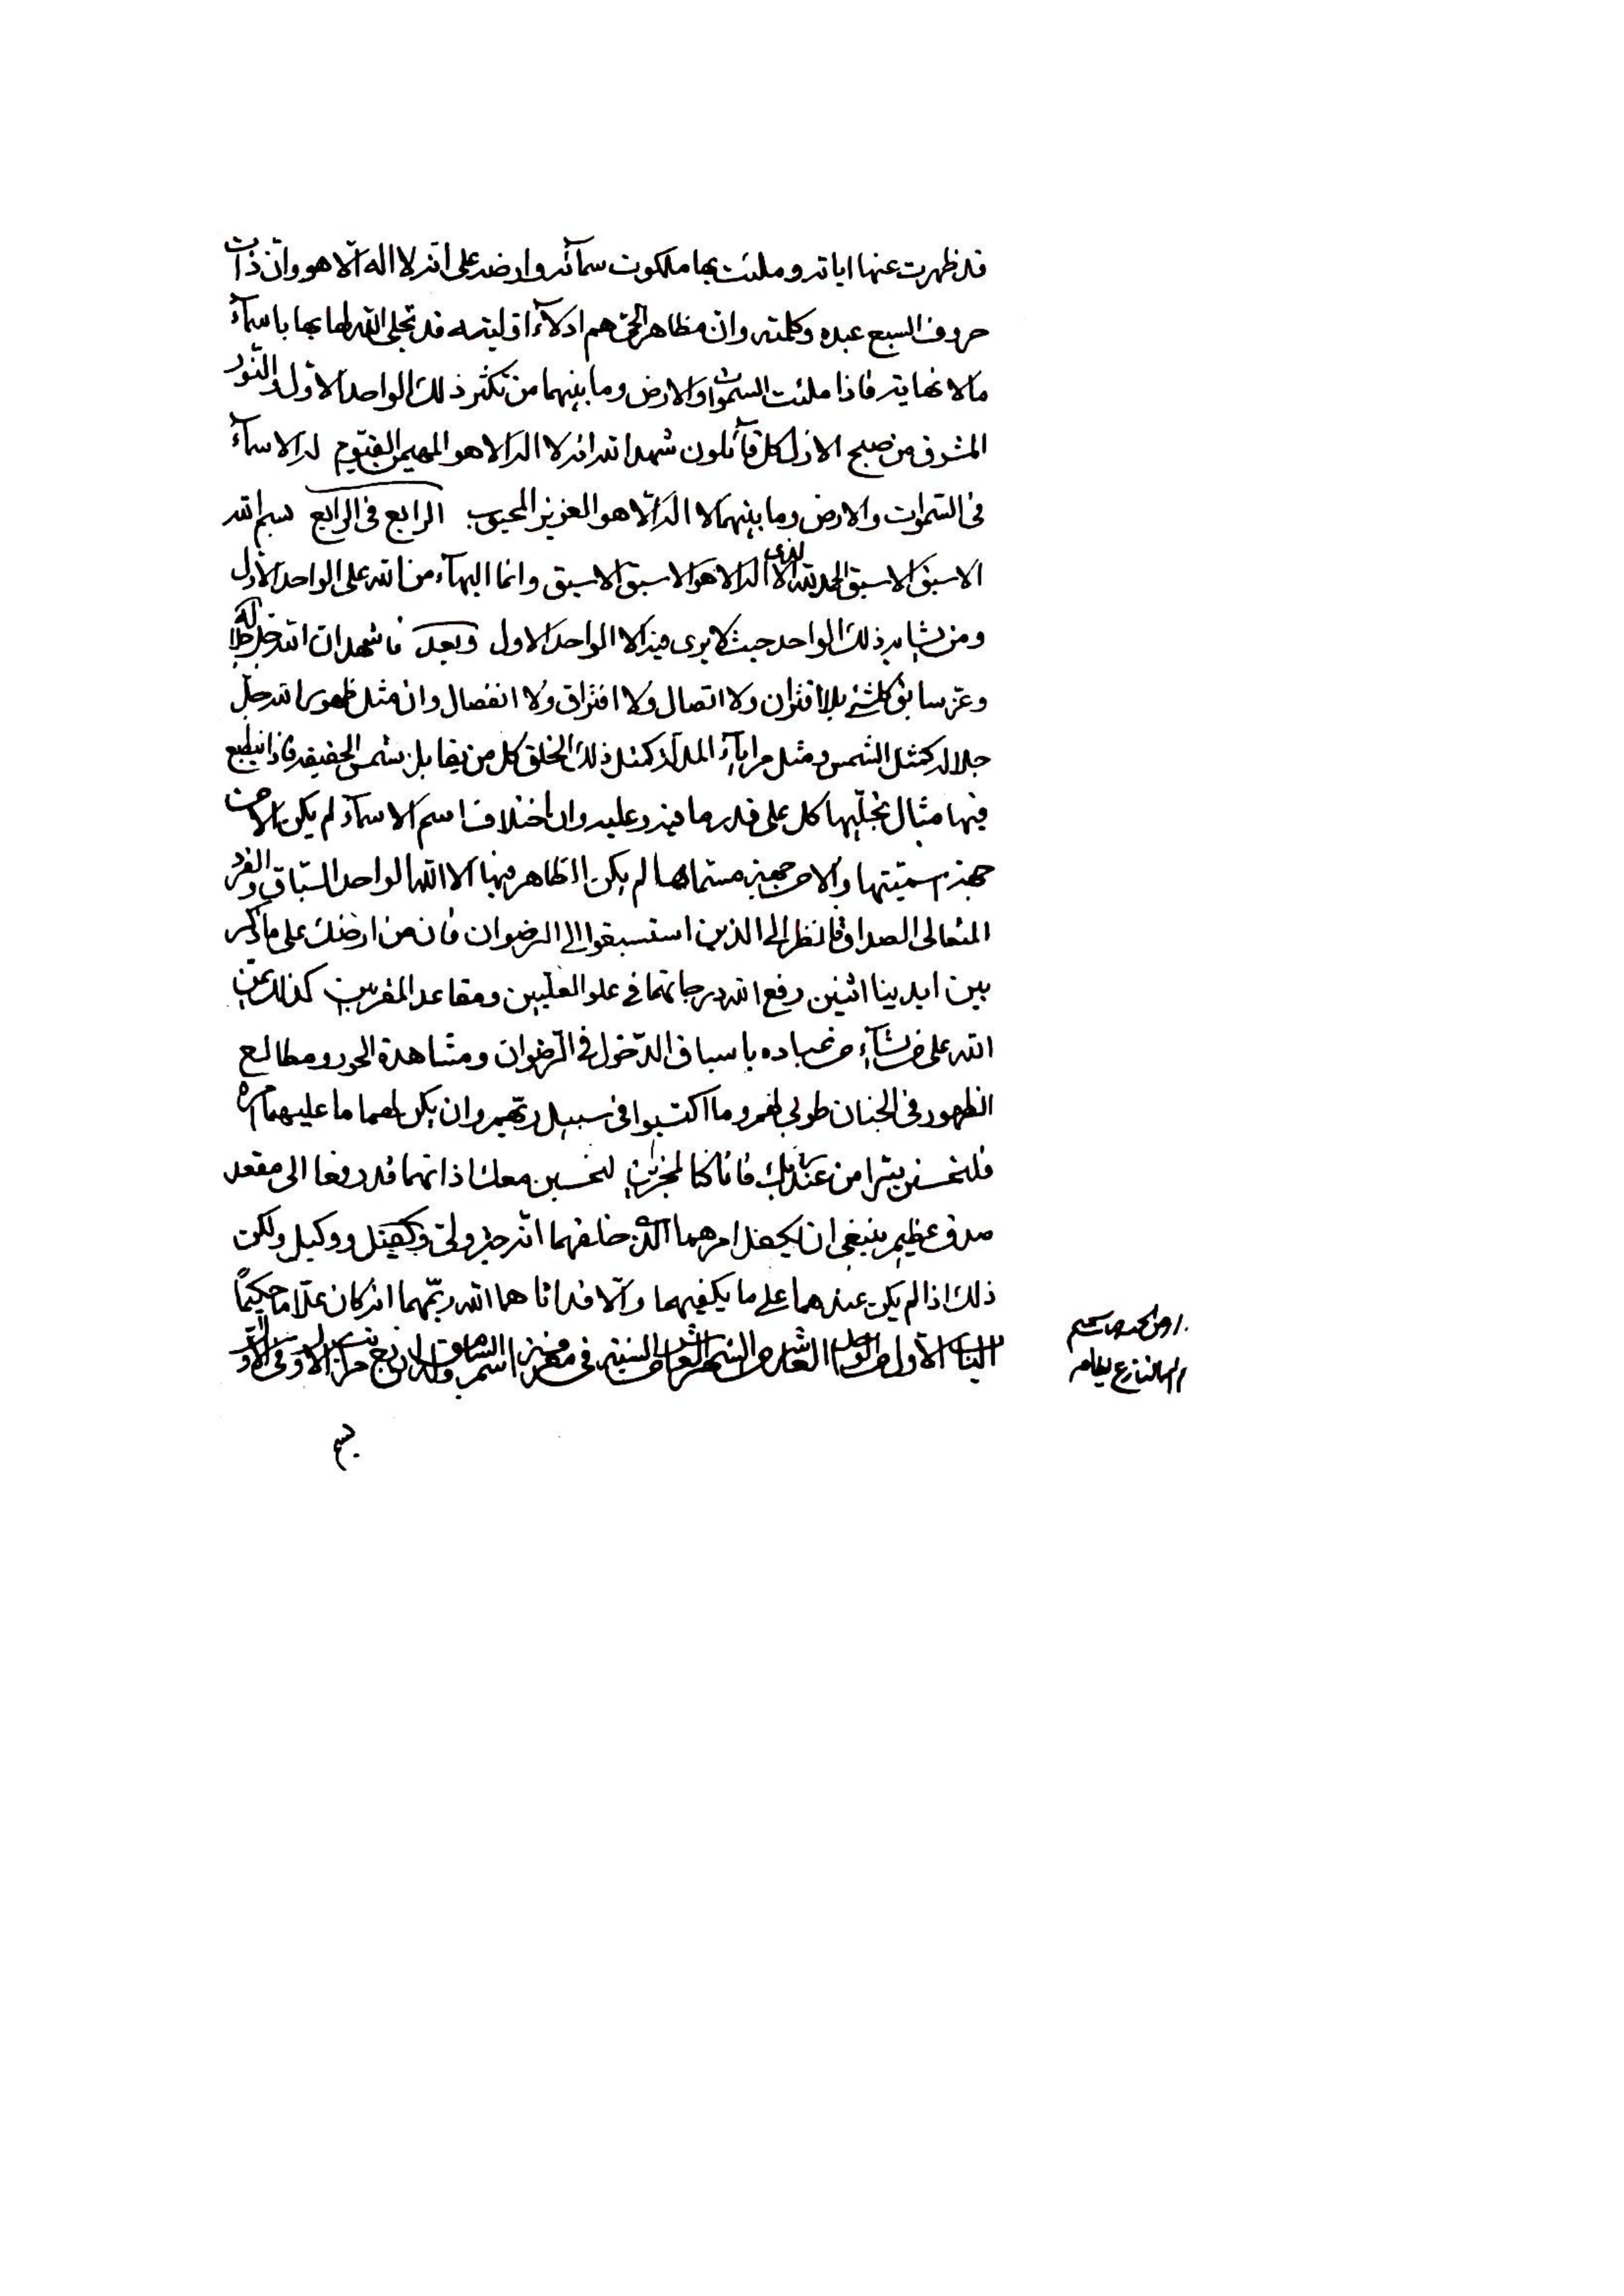 قد ظهرت عنها اياته و ملئت بها ملكوت سمآئه و ارضه على انه لا اله الّا هو وانّ ذات
حروف السبع عبده وكلمته وان مظاهر الحىّ هم ادلآء اوليته قد تجلى الله لها بها باسمآء
مالا نهاية فاذا ملئت السموات والارض وما بينهما من تكثر ذلك الواحد الاوّل والنّور
المشرق من صبح الازل كل قآئلون شهد الله انه لا اله الا هو المهيمن القيّوم له الاسمآء
فى السّموات والارض وما بينهما لا اله الّا هو العزيز المحبوب الرابع فى الرابع بسم الله
الاسبق الاسبق الحمد لله الذى لا اله الا هو الاسبق الاسبق وانما البهآء من الله على الواحد الاول
ومن يشابه ذلك الواحد حيث لا يرى فيه الا الواحد الاول وبعد فاشهد ان الله جل جلاله
وعز سابق كلشئ بلا اقتران ولا اتصال ولا افتراق ولا انفصال وان مثل ظهور الله جلّ
جلاله كمثل الشمس ومثل مرايآء المدلّة كمثل ذلك الخلق كل من يقابل شمس الحقيقة فاذا ينطبع
فيها مثال تجلّيها كل على قدر ما قدر عليه وان اختلاف اسم الاسمآء لم يكن الا من
جهة تسميتها والا من جهة مسمّاها لم يكن الظاهر فيها الا الله الواحد السّباق والفرد
المتعالى الصداق فانظر الى الذين استسبقوا الى الرضوان فان من ارضك على ما ذكر
بين ايدينا اثنين رفع الله درجاتهما فى علو العلّيين ومقاعد المقربين كذلك يمنّ
الله على من يشآء من عباده باسباق الدّخول فى الرّضوان ومشاهدة الحور ومطالع
الظهور فى الجنان طوبى لهم وما اكتسبوا فى سبيل ربّهم وان يكن لهما ما عليهما امره
فلتحسنن بشرا من عند ربك فانا كنا لمجزين لمحسنين معك اذ انهما قد رفعا الى مقعد
صدق عظيم ينبغى ان يكفل امرهما الله خالقهما انّه خير ولىّ وكفيل ووكيل ولكن
ذلك اذا لم يكن عندهما على ما يكفيهما والّا قد اتاهما الله ربّهما انه كان علّاما حكيماً
الباب الاول من الواحد العاشر من الشهر العاشر من السنة فى معرفة اسم السابق
بسم